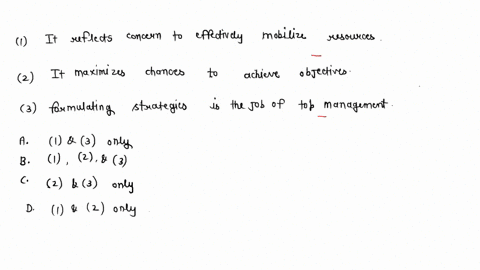 (1) It reflects concern to effectively mobilize resources.
(2) It maximizes chances to achieve objectives.
(3) formulating strategies is the job of top management.
A. (1) & (3) only
B. (1), (2), & (3)
C. (2) & (3) only
D. (1) & (2) only